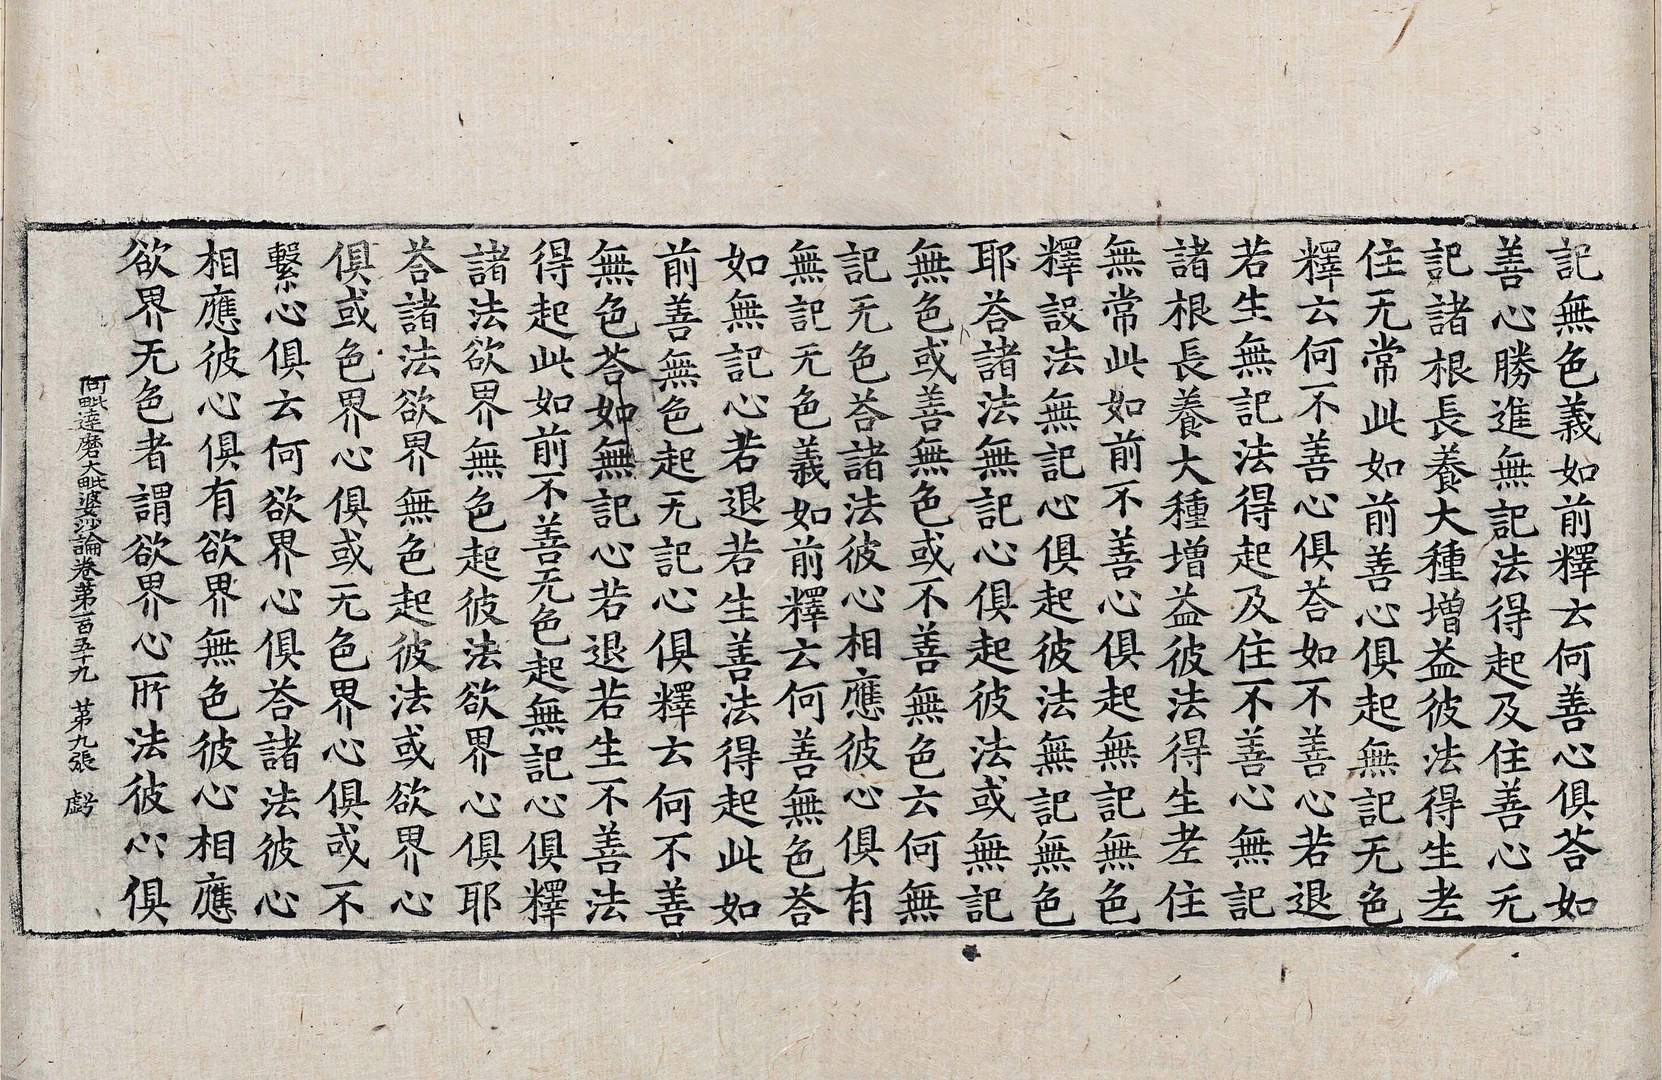 記無色義如前釋云何善心俱荅如
善心勝進無記法得起及住善心无
記諸根長養大種增益彼法得生老
住无常此如前善心俱起無記无色
釋云何不善心俱荅如不善心若退
若生無記法得起及住不善心無記
諸根長養大種增益彼法得生老住
無常此如前不善心俱起無記無色
釋設法無記心俱起彼法無記無色
耶荅諸法無記心俱起彼法或無記
無色或善無色或不善無色云何無
記无色荅諸法彼心相應彼心俱有
無記无色義如前釋云何善無色荅
如無記心若退若生善法得起此如
前善無色起无記心俱釋云何不善
無色荅如無記心若退若生不善法
得起此如前不善无色起無記心俱釋
諸法欲界無色起彼法欲界心俱耶
荅諸法欲界無色起彼法或欲界心
俱或色界心俱或无色界心俱或不
繫心俱云何欲界心俱荅諸法彼心
相應彼心俱有欲界無色彼心相應
欲界无色者謂欲界心所法彼心俱
阿毗達磨大毗婆沙論卷第一百五十九 第九張 虧